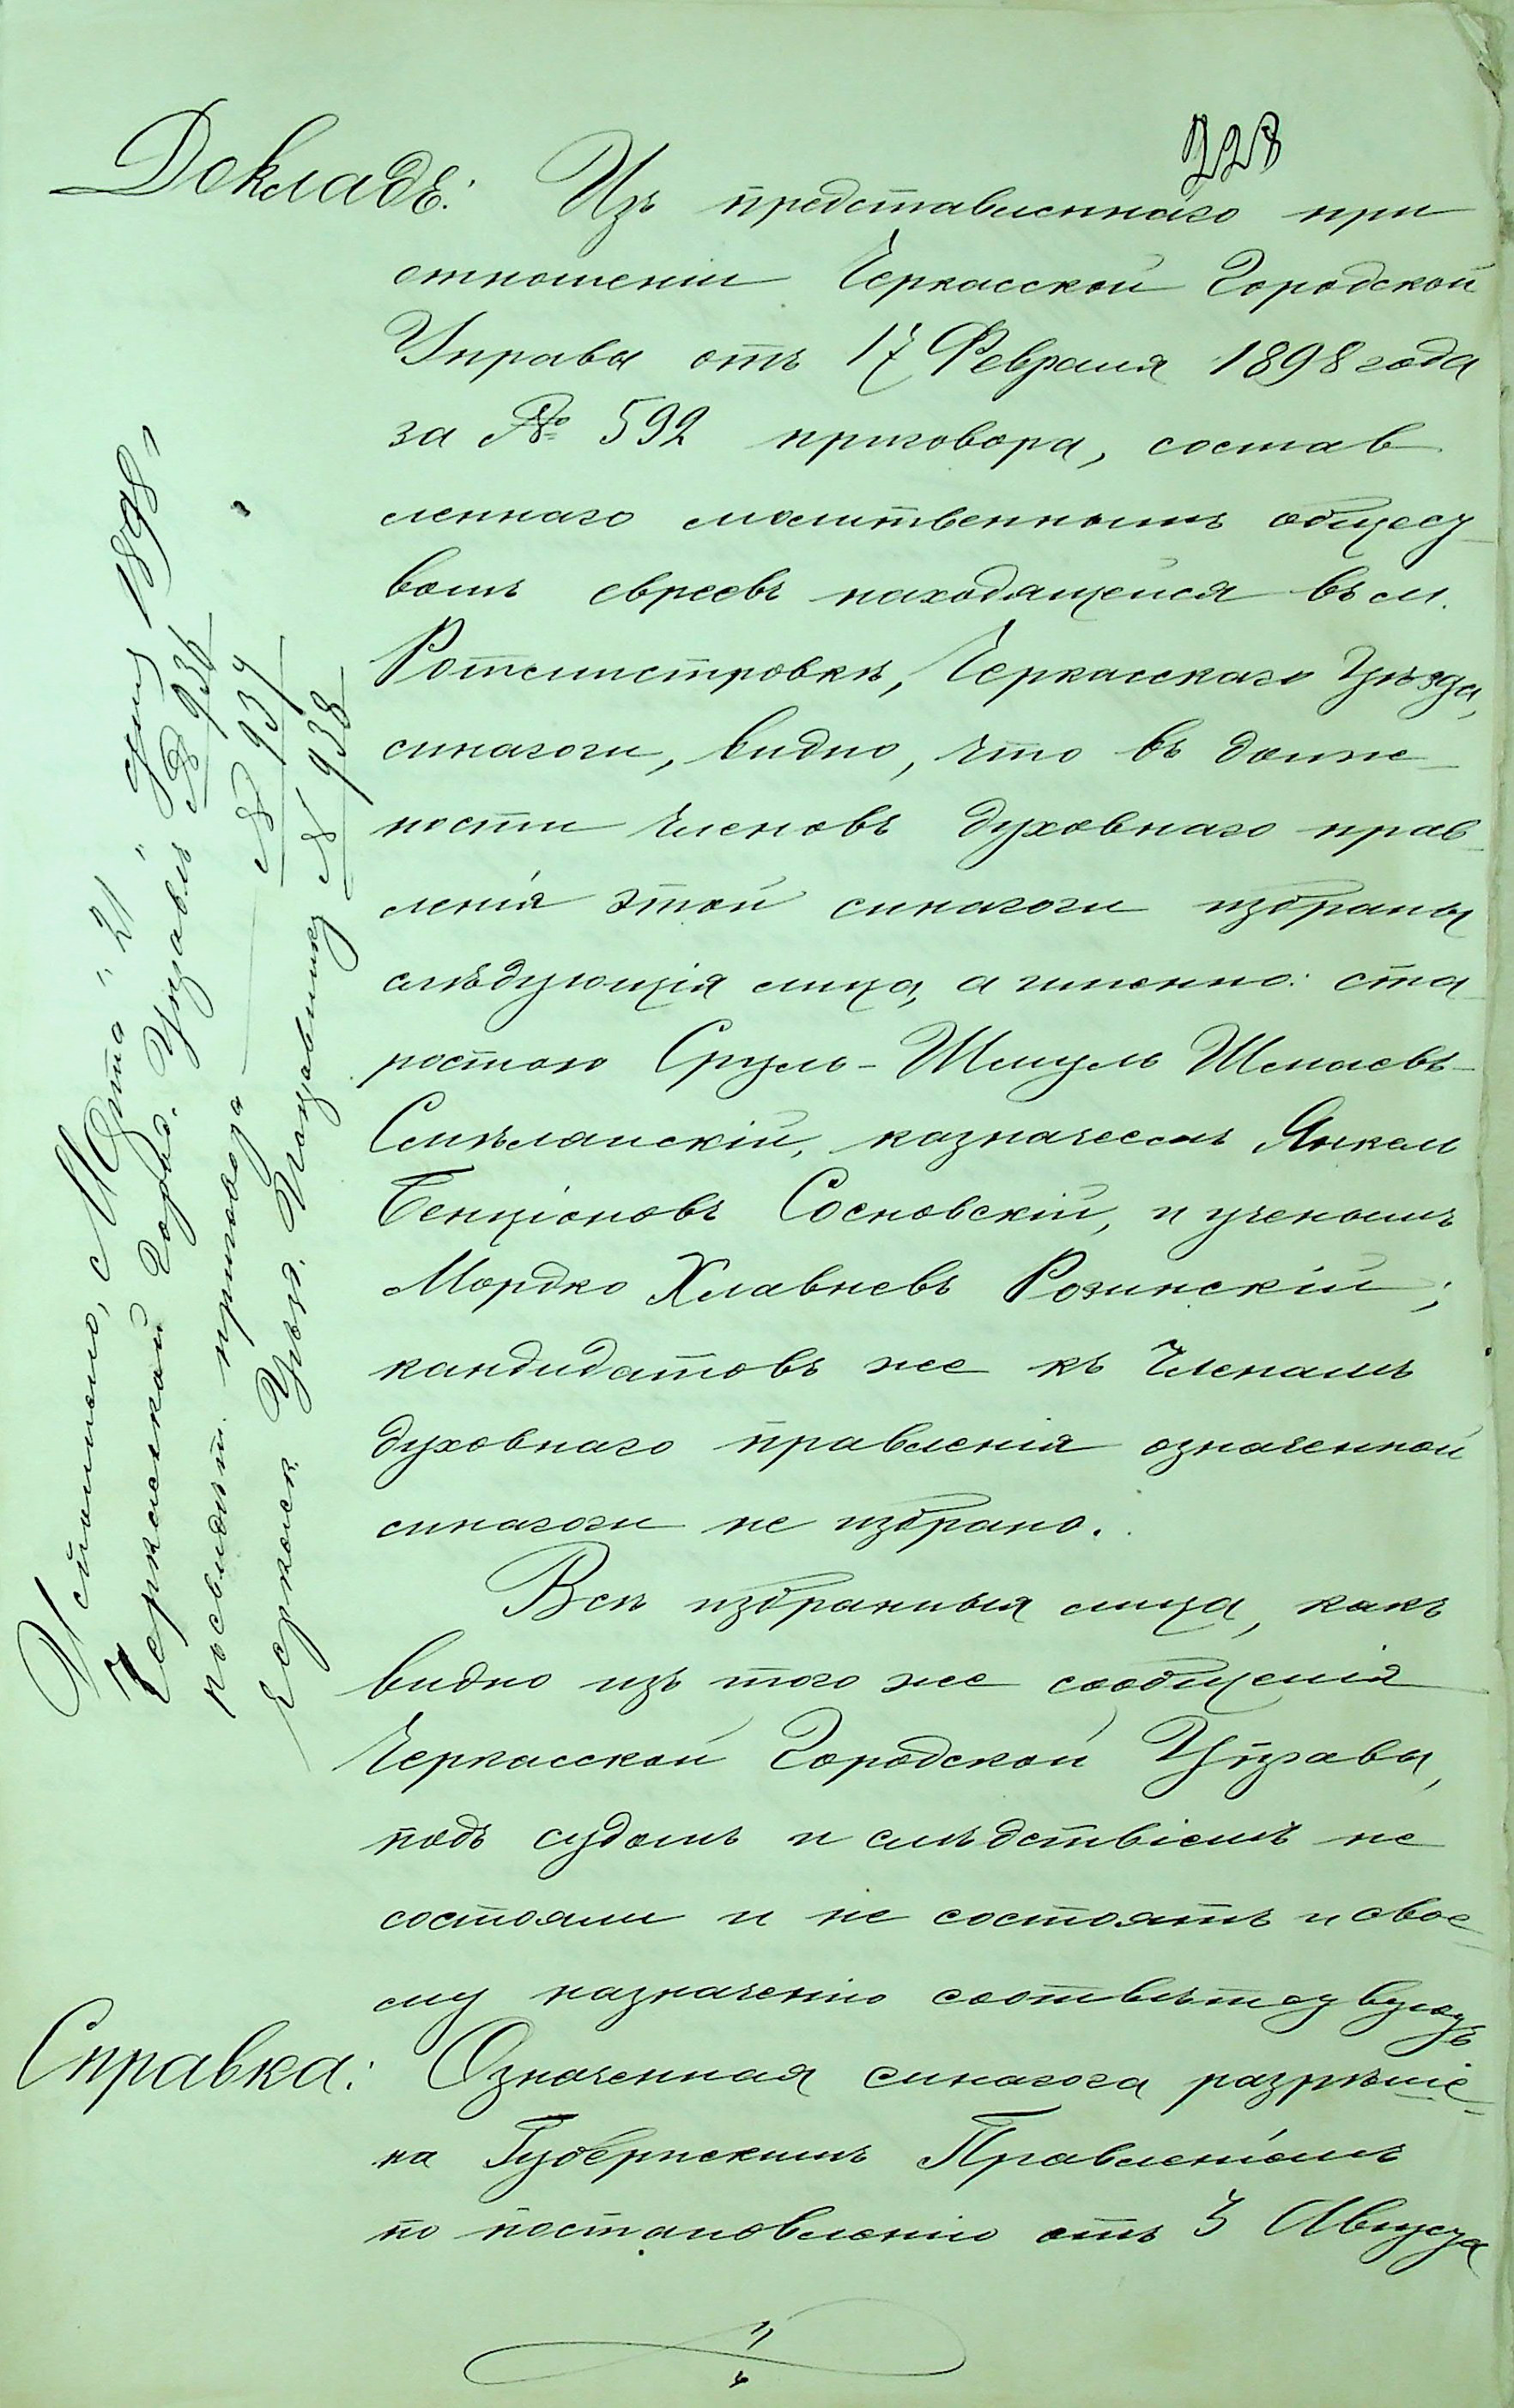 228
Докладъ: Изъ представленнаго при
отношеніи Черкасской Городской
Управы отъ 17 Февраля 1898 года
за № 592 приговора, состав
леннаго молитвеннымъ общест
вомъ евреевъ находящейся въ м.
Ротмистровкѣ, Черкасскаго Уѣзда,
синагоги, видно, что въ долж-
ности членовъ духовнаго прав-
ленія этой синагоги избраны
слѣдующія лица, а именно: ста-
ростою Сруль-Шмуль Шмаевъ-
Смѣлянскій, казначеемъ Янкель
Бенціоновъ Сосновскій, и ученымъ
Мордко Хлавневъ Розинскій;
кандидатовъ же къ членамъ
духовнаго правленія означенной
синагоги не избрано.
Всѣ избранныя лица, какъ
видно изъ того же сообщенія
Черкасской Городской Управы,
подъ судомъ и слѣдствіемъ не
состояли и не состоятъ и свое-
му назначенію соотвѣтствуютъ
Справка: Означенная синагога разрѣше-
на Губернскимъ Правленіемъ
по постановленію отъ 3 Августа
Исполнено, Марта "21" дня 1898 г
Черкасской Город. Управѣ № 936
приговора № 937
Черкасск Уѣзд. Исправнику № 938